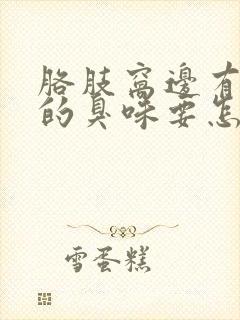 胳肢窩邊有
的臭味要怎
雪蛋糕